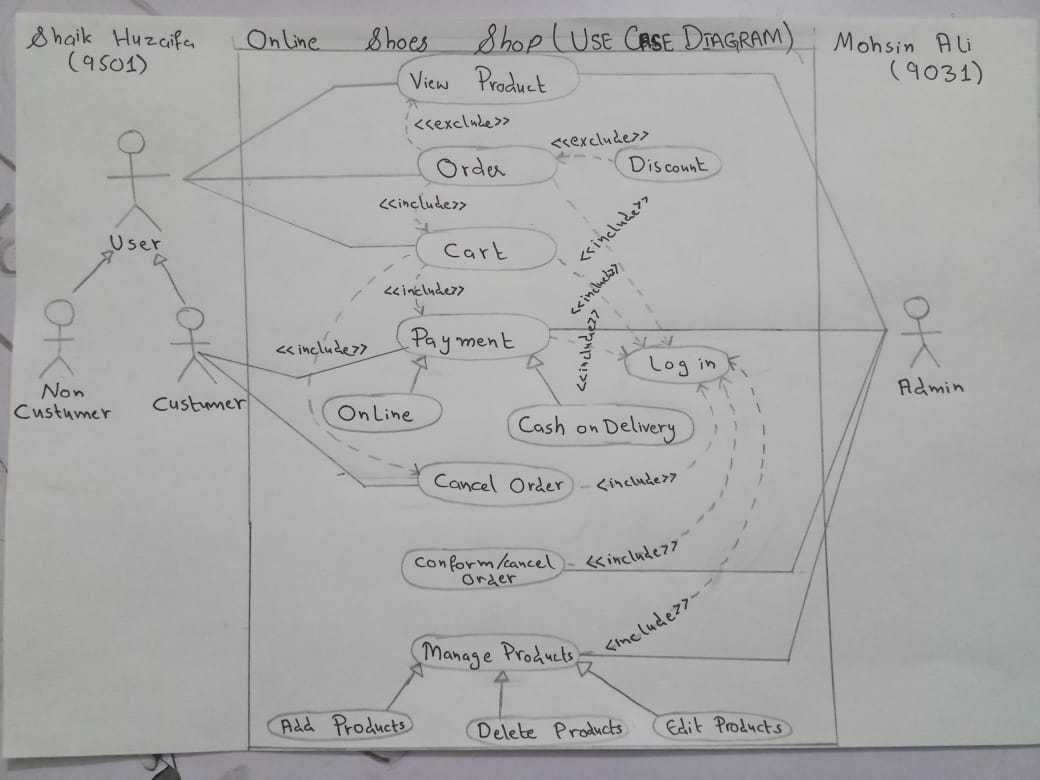 Shaik Huzaifa
(9501)
Online Shoes Shop (USE CASE DIAGRAM)
Mohsin Ali
(9031)
View Product
<<exclude>>
<<exclude>>
Order
Discount
<<include>>
<<include>>
User
Cart
<<include>>
<<include>>
Payment
<<include>>
<<include>>
Log in
Non
Custumer
Custumer
Admin
OnLine
Cash on Delivery
Cancel Order
<<include>>
Conform/cancel
Order
<<include>>
<<include>>
Manage Products
Add Products
Delete Products
Edit Products